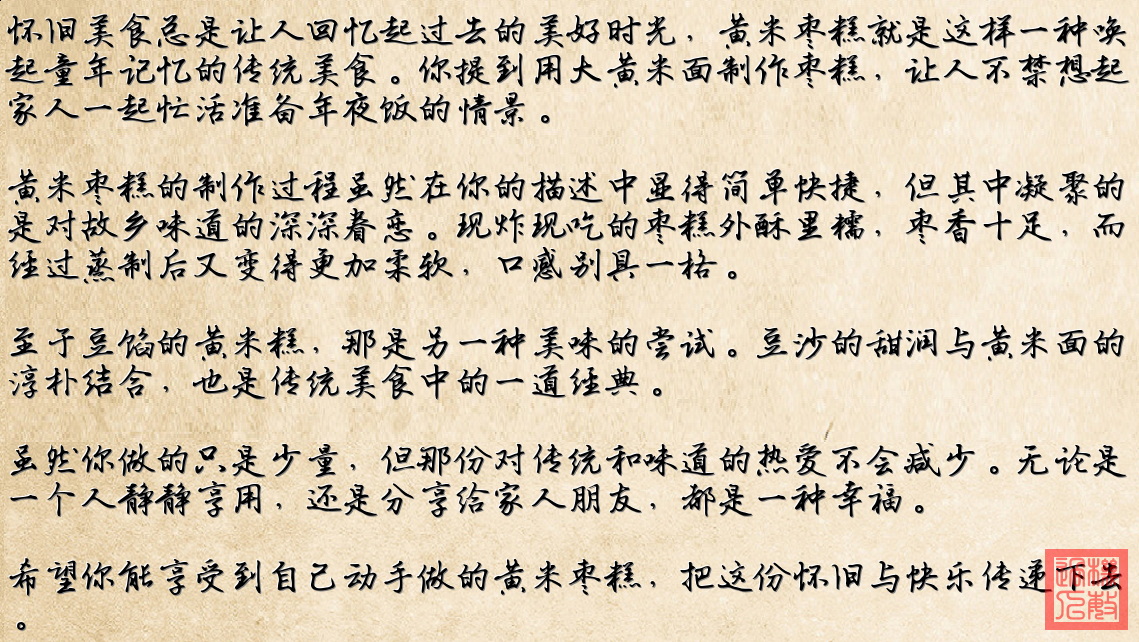 怀旧美食总是让人回忆起过去的美好时光，黄米枣糕就是这样一种唤
起童年记忆的传统美食。你提到用大黄米面制作枣糕，让人不禁想起
家人一起忙活准备年夜饭的情景。
黄米枣糕的制作过程虽然在你的描述中显得简单快捷，但其中凝聚的
是对故乡味道的深深眷恋。现炸现吃的枣糕外酥里糯，枣香十足，而
经过蒸制后又变得更加柔软，口感别具一格。
至于豆馅的黄米糕，那是另一种美味的尝试。豆沙的甜润与黄米面的
淳朴结合，也是传统美食中的一道经典。
虽然你做的只是少量，但那份对传统和味道的热爱不会减少。无论是
一个人静静享用，还是分享给家人朋友，都是一种幸福。
希望你能享受到自己动手做的黄米枣糕，把这份怀旧与快乐传递下去
。